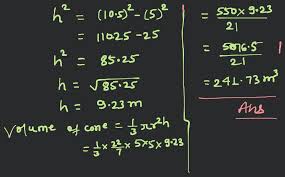 h² = (10.5)² - (5)²
= 110.25 - 25
h² = 85.25
h = √85.25
h = 9.23 m
Volume of cone = 1/3 πr²h
= 1/3 × 22/7 × 5 × 5 × 9.23
= 550 × 9.23 / 21
= 5076.5 / 21
= 241.73 m³
Ans